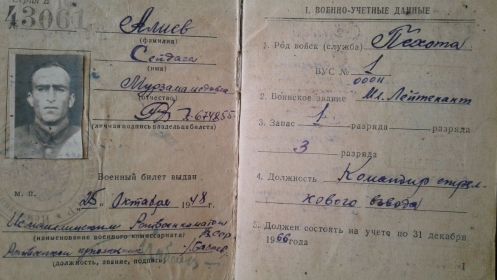 43061
Алиев
(фамилия)
Сейдага
(имя)
(отчество)
(личная подпись владельца билета)
Военный билет выдан
м. п. 25 Октября 1948 г.
(наименование военного комиссариата)
(должность, звание, подпись)
I. ВОЕННО-УЧЕТНЫЕ ДАННЫЕ
1. Род войск (служба) Пехота
ВУС № 1
2. Воинское звание Мл. Лейтенант
3. Запас 1 разряда разряда
3 разряда
4. Должность Командир стрел-
кового взвода
5. Должен состоять на учете по 31 декабря
1966 года
1